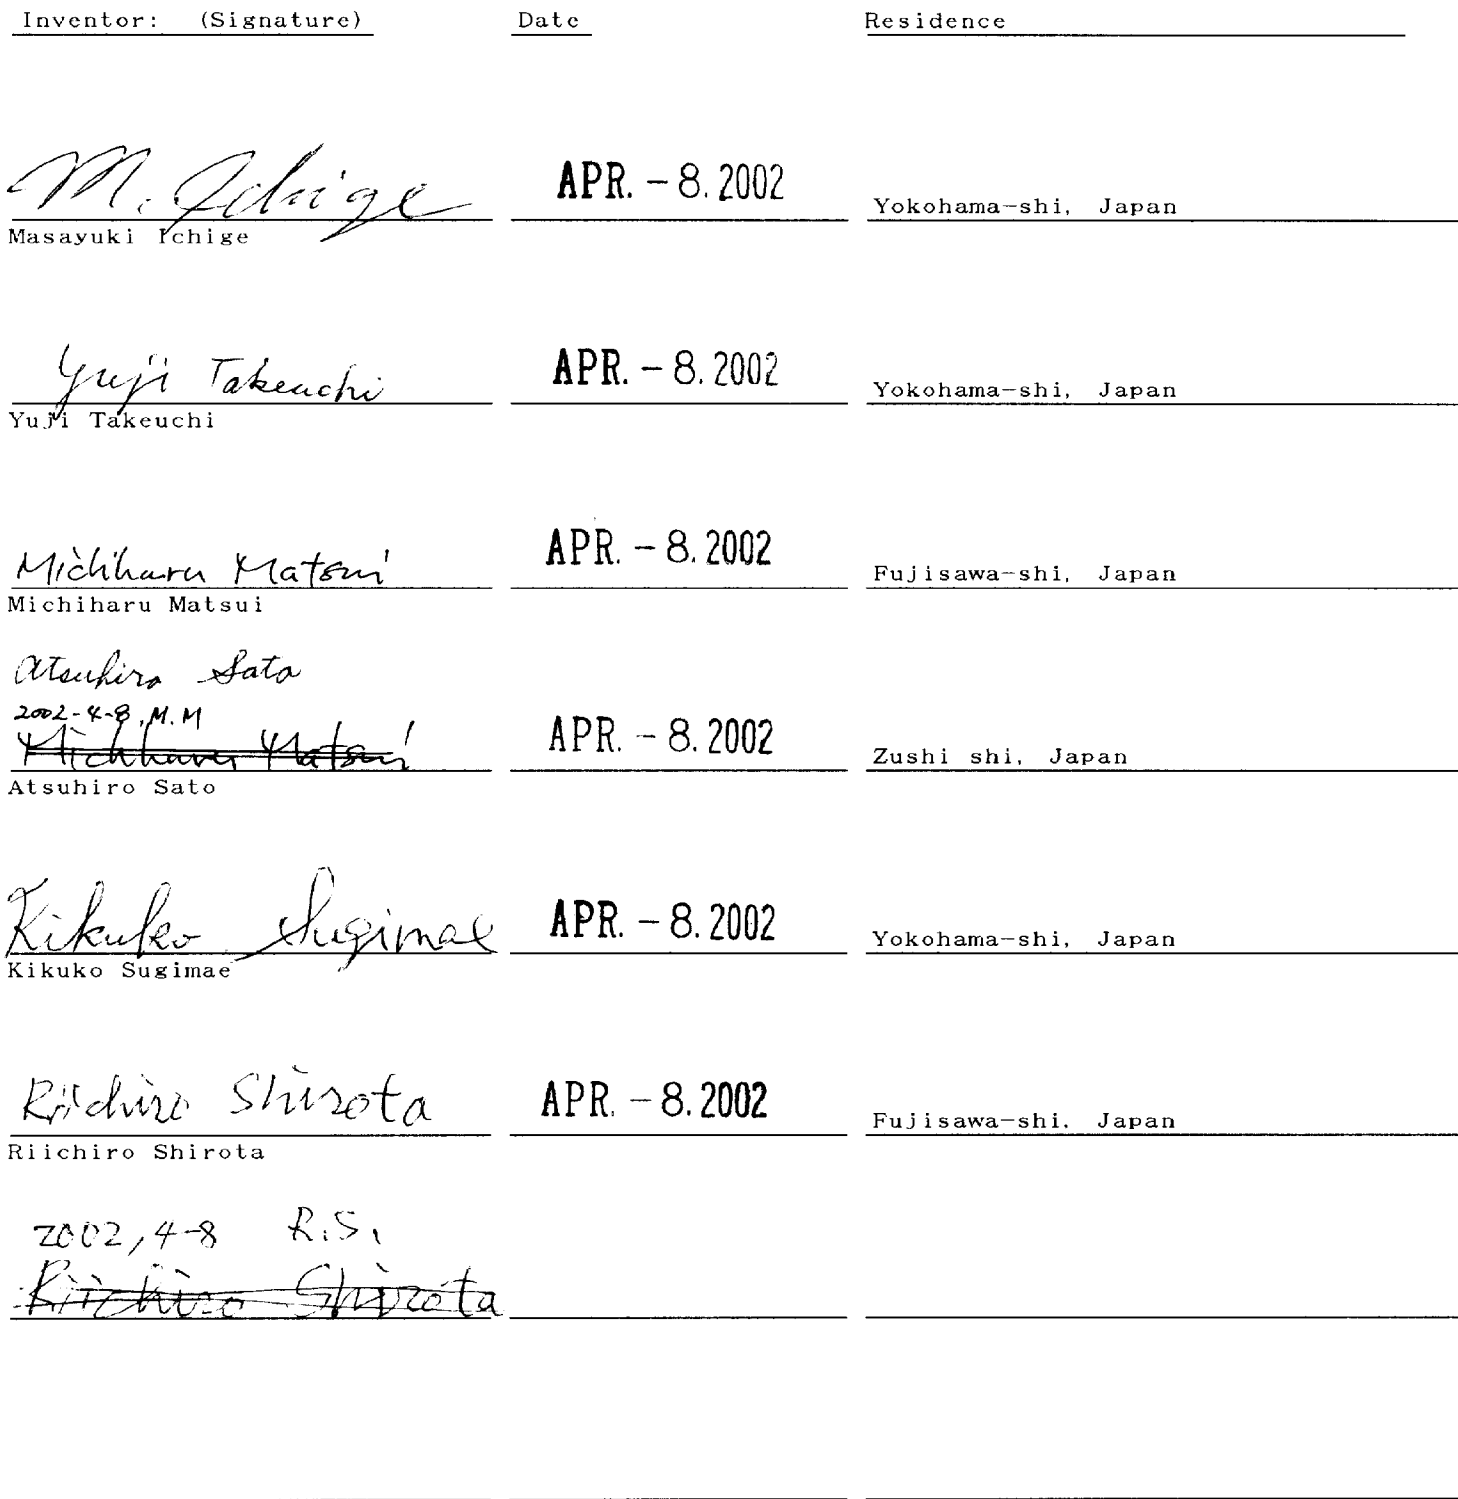 Inventor: (Signature) Date Residence
M. Ichige APR. -8.2002 Yokohama-shi, Japan
Masayuki Ichige
Yuji Takeuchi APR. -8.2002 Yokohama-shi, Japan
Yuji Takeuchi
Michiharu Matsui APR. -8.2002 Fujisawa-shi, Japan
Michiharu Matsui
Atsuhiro Sato
2002-4-8, M.M
Michiharu Matsui APR. -8.2002 Zushi shi, Japan
Atsuhiro Sato
Kikuko Sugimae APR. -8.2002 Yokohama-shi, Japan
Kikuko Sugimae
Riichiro Shirota APR. -8.2002 Fujisawa-shi, Japan
Riichiro Shirota
2002,4-8 R.S.
Riichiro Shirota